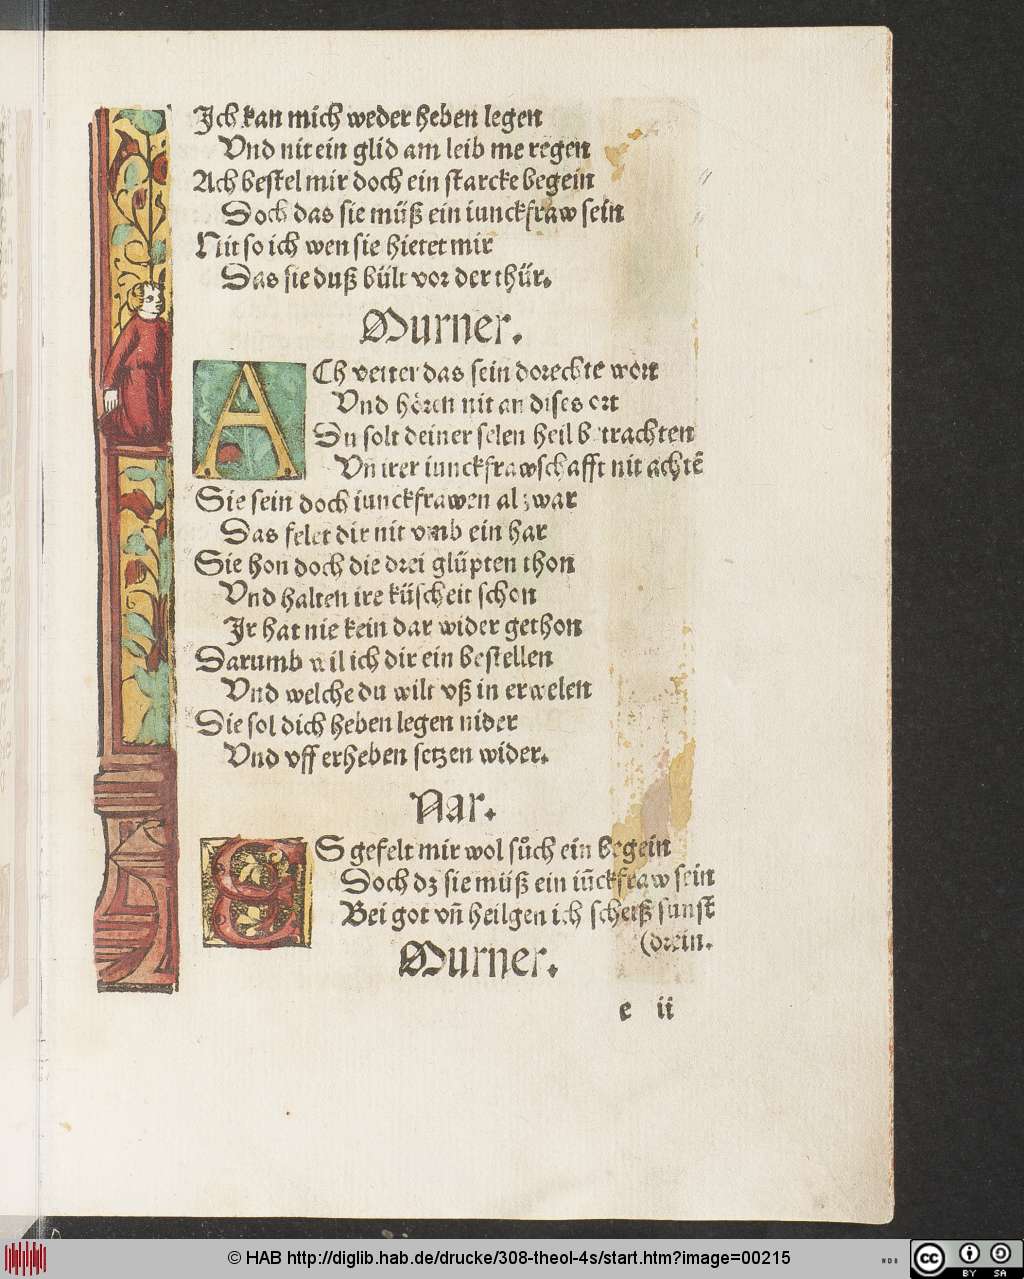 Ich kan mich weder heben legen
Vnd nit ein glid am leib me regen
Ach bestel mir doch ein starcke begein
Doch das sie müß ein iunckfraw sein
Nit so ich wen sie hietet mir
Das sie duß bült vor der thür.
Murner.
ACh vetter das sein doreckte wort
Vnd hören nit an dises ort
Du solt deiner selen heil betrachten
Vn irer iunckfrawschafft nit achtē
Sie sein doch iunckfrawen al zwar
Das felet dir nit vmb ein har
Sie hon doch die drei glüpten thon
Vnd halten ire küscheit schon
Ir hat nie kein dar wider gethon
Darumb wil ich dir ein bestellen
Vnd welche du wilt vß in erwelen
Die sol dich heben legen nider
Vnd vff erheben setzen wider.
Nar.
ES gefelt mir wol sůch ein begein
Doch dz sie müß ein iūckfraw sein
Bei got vñ heilgen ich scheiß sunst
(drein.
Murner.
e ii
© HAB http://diglib.hab.de/drucke/308-theol-4s/start.htm?image=00215
WDB
cc BY SA